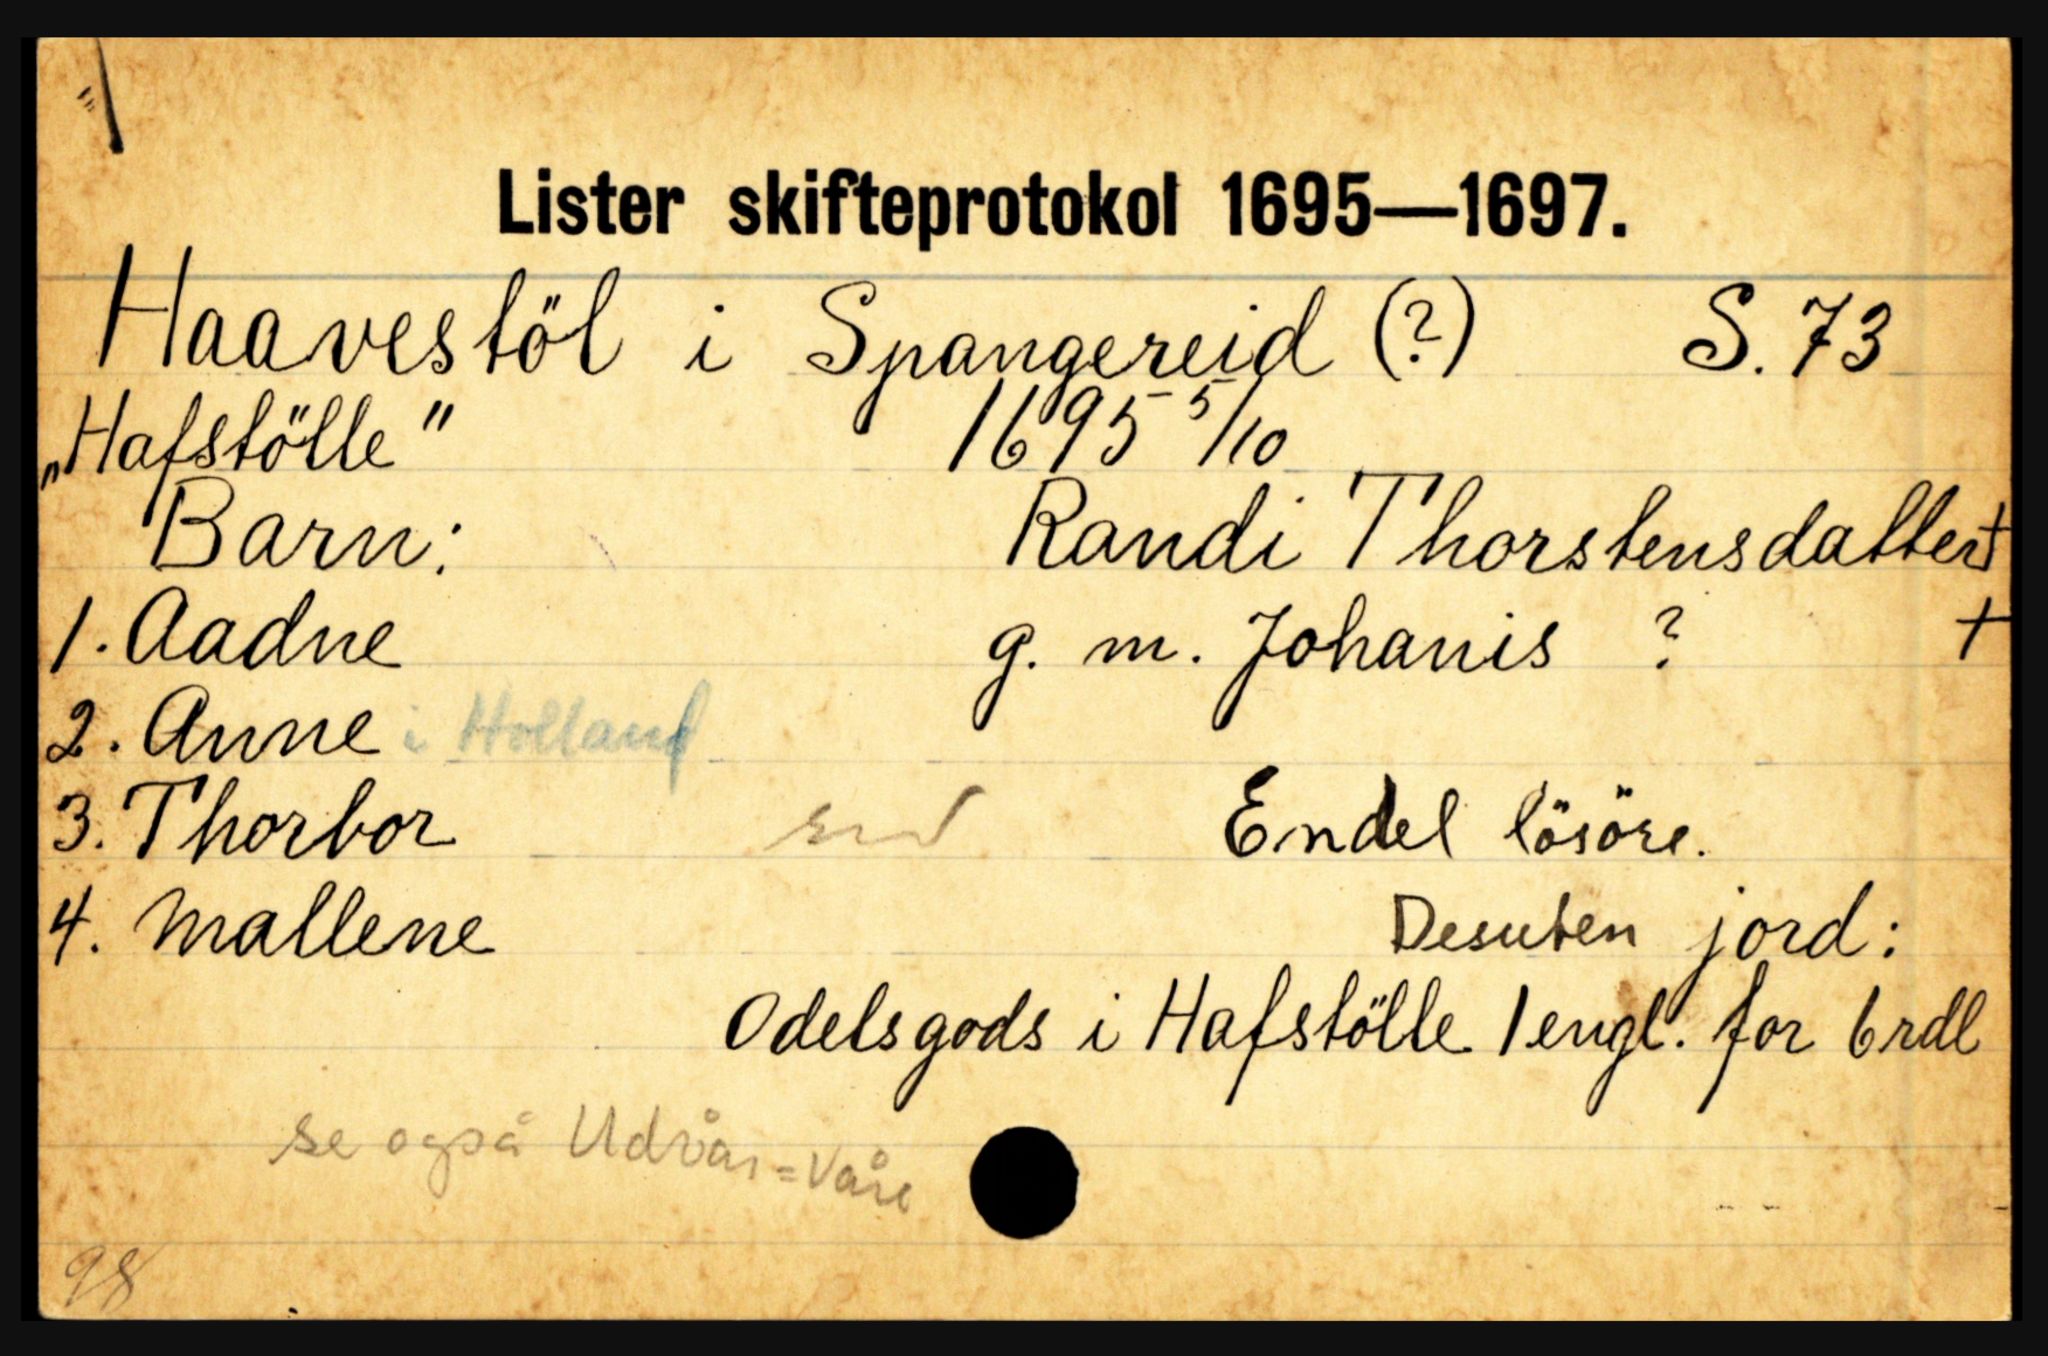 Lister skifteprotokol 1695—1697.
Haavestöl i Spangereid (?) S. 73
„Hafstölle" 1695 5/10
Barn: Randi Thorstensdatter +
1. Aadne g. m. Johanis ? +
2. Anne i Holland
3. Thorbor Endel lösöre.
4. Mallene Desuten jord:
Odelsgods i Hafstölle 1 engl. for 6 rdl
se også Udvår = Våre
98